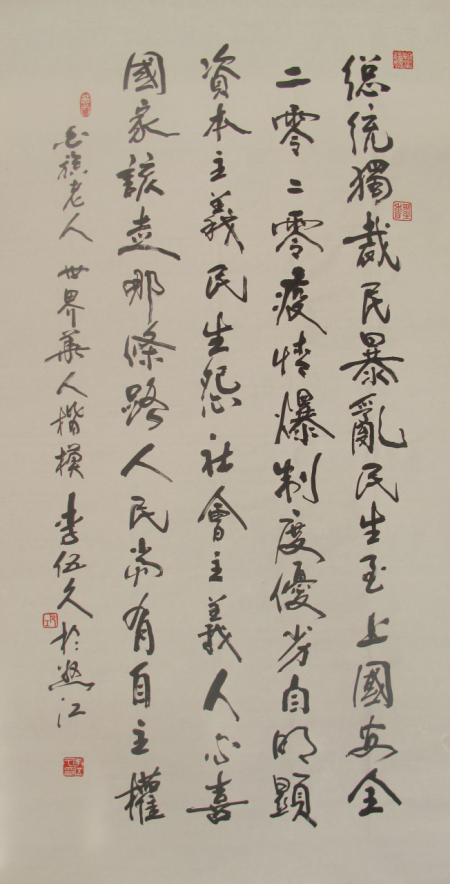 總統獨裁民暴亂民生至上國安全
二零二零疫情爆制度優劣自明顯
資本主義民生怨社會主義人心喜
國家該走哪條路人民當有自主權
老人 世界華人楷模 李伍久於江